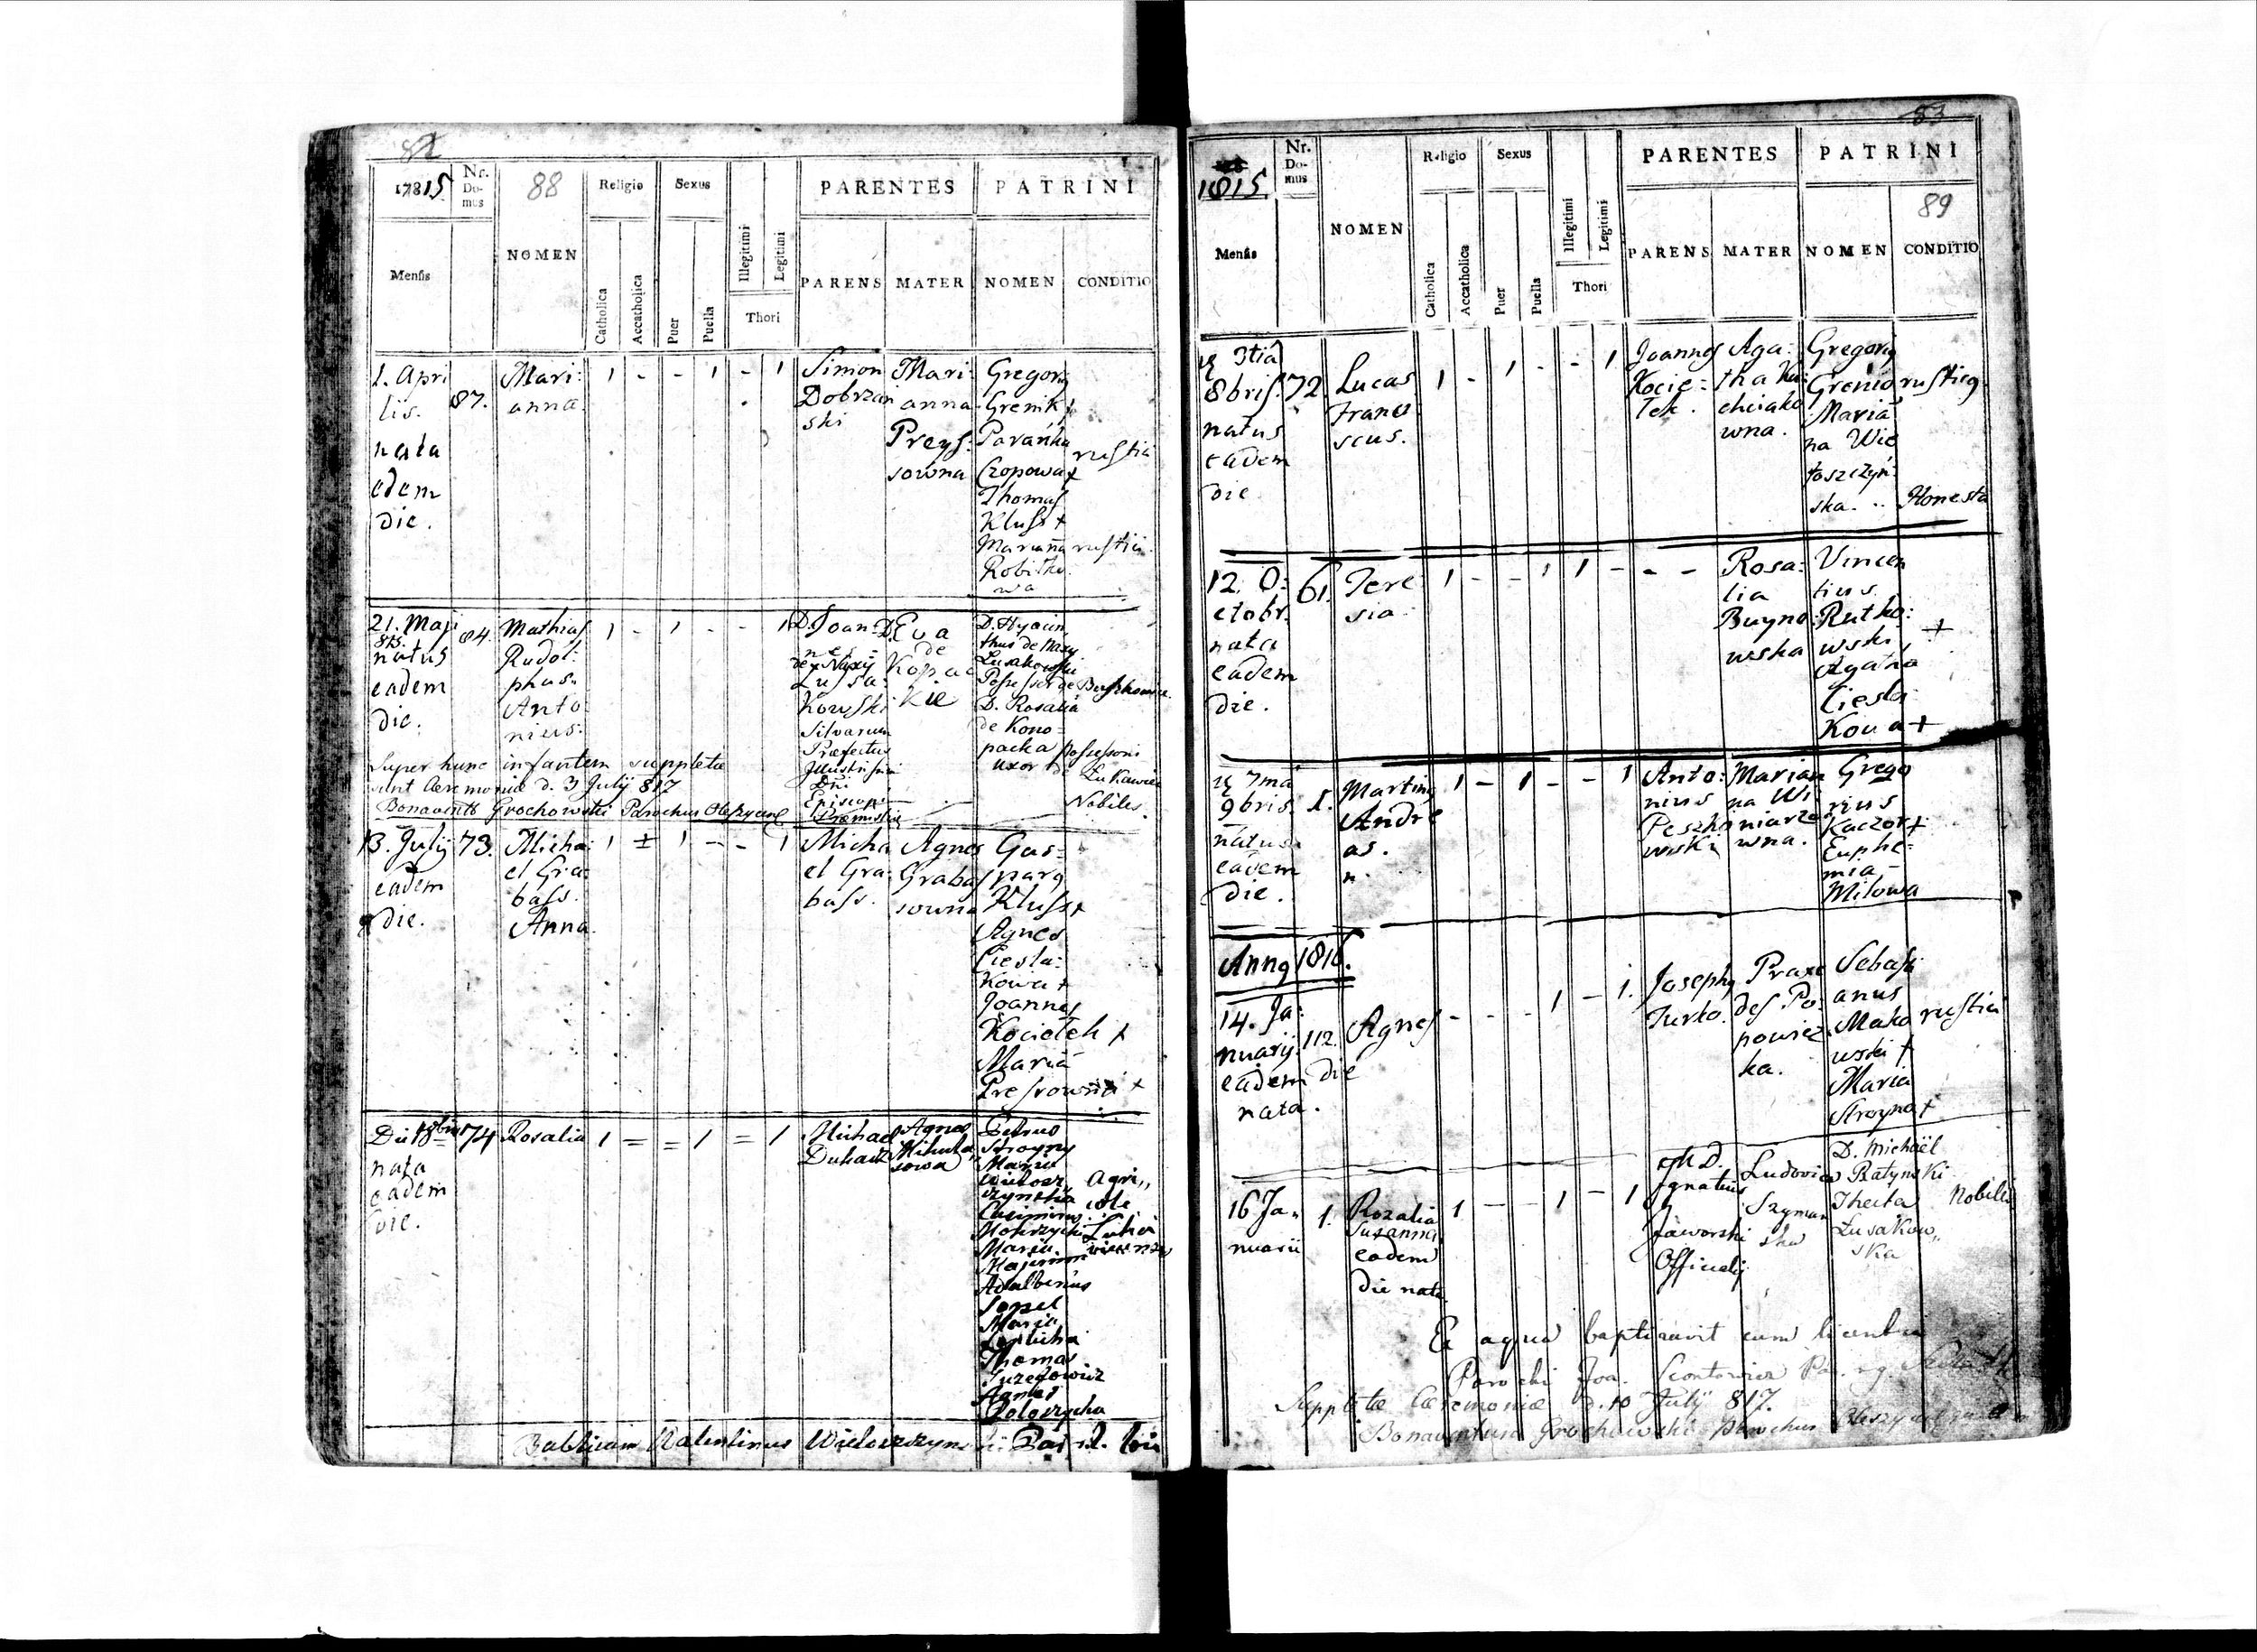 82
17815
Nr. Do-mus
88
Religio
Sexus
PARENTES
PATRINI
Mensis
NOMEN
Catholica
Accatholica
Puer
Puella
Illegitimi
Legitimi
Thori
PARENS
MATER
NOMEN
CONDITIO
1. Apri
lis.
nata
edem
die.
87.
Mari:
anna.
1 - - 1 - 1
Simon
Dobrzań
ski
Mari
anna
Preys:
sowna
Gregorÿ
Grenik +
Parańka
Czopowa +
Thomas
Kluss +
Marianna
Robitko
wa
rustici
rustici
21. Maji
815.
natus
eadem
die.
84.
Mathias
Rudol:
phus.
Anto
nius.
1 - 1 - - 1
D. Joan
nes
de Naxÿ
Lussa
Kowski
Silvarum
Præfectus
Illustrissimi
Dni
Episcopi
Premislien
D. Eva
de
Kopac
Kie
D. Hyacin
thus de Naxy
Lusakowski
Possessor de Buszkowice
D. Rosalia
de Kono-
packa possessoris
uxor de Łukawiec
Nobiles
Super hunc infantem suppletæ
sunt Ceremoniæ d. 3 Julÿ 817
Bonavent Grochowski Parochus Oleszycens
13. Julÿ
eadem
die.
73.
Micha:
el Gra:
bass.
Anna.
1 ± 1 - - 1
Micha
el Gra:
bass.
Agnes
Grabas
sowna
Gas-
parg
Kluss +
Agnes
Ciesla:
Kowa +
Joannes
Kociołek +
Maria
Pressowna +
Die 18bris
nata
eadem
die.
74
Rosalia
1 = = 1 = 1
Michael
Dukacz
Agnes
Mikuła
sowa
Petrus
Stroyny
Maria
Wietosz
zynska
Casimirus
Mokrzycki
Maria
Adalbertus
Sopel
Maria
Thomas
Agnes
Agri,,
colæ
Baptisavit Valentinus Wietoszzyns
83
1815
Nr. Do-mus
NOMEN
Religio
Sexus
PARENTES
PATRINI
89
Mensis
Catholica
Accatholica
Puer
Puella
Illegitimi
Legitimi
Thori
PARENS
MATER
NOMEN
CONDITIO
3tia
8bris.
natus
eadem
die
72
Lucas
Franci
scus.
1 - 1 - - 1
Joannes
Kocie-
łek.
Aga:
tha Ku
chciako
wna.
Gregorÿ
Grenio
Maria
na Wie
toszczyń:
ska. ..
rustici
Honesta
12. O:
ctobr.
nata
eadem
die.
61.
Tere
sia.
1 - - 1 1 - - -
Rosa:
lia
Buyno
wska
Vincen
tius
Rutko:
wski +
Agatha
Ciesla
Kowa +
7ma
9bris.
natus
eadem
die.
1.
Martinÿ
Andre
as.
1 - 1 - - 1
Anto:
nius
Peszko
wski
Marian
na Wi
niarzo
wna.
Grego
rius
Kaczor +
Euphe-
mia
Milowa
Anno 1816.
14. Ja:
nuarij
eadem die
nata.
112.
Agnes
- - - 1 - 1.
Joseph
Turko.
Praxe
des Po:
powicz
ka.
Sebasti
anus
Mako
wski +
Maria
Stroyna +
rustici
16 Ja,,
nuarii
1.
Rozalia
Susanna
eadem
die nata
1 - - 1 - 1
D.
Ignatius
Jaworski
Officialis
Ludovica
Szyman
ska
D. Michaël
Ratynski
Thecla
Łusakow,,
ska
Nobiles
Ex aqua baptizavit cum licentia
Parochi Joa.
Suppletæ Cæremoniæ d. 10 Julÿ 817.
Bonaventura Grochowski Parochus